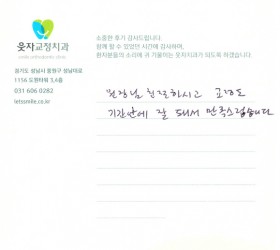 웃자교정치과
소중한 후기 감사드립니다.
함께 할 수 있었던 시간에 감사하며,
환자분들의 소리에 귀 기울이는 웃자치과가 되도록 하겠습니다.
경기도 성남시 중원구 성남대로
1156 도원타워 3,4층
031 606 0282
letssmile.co.kr
원장님 친절하시고 교정도
기간안에 잘 되서 만족스럽습니다